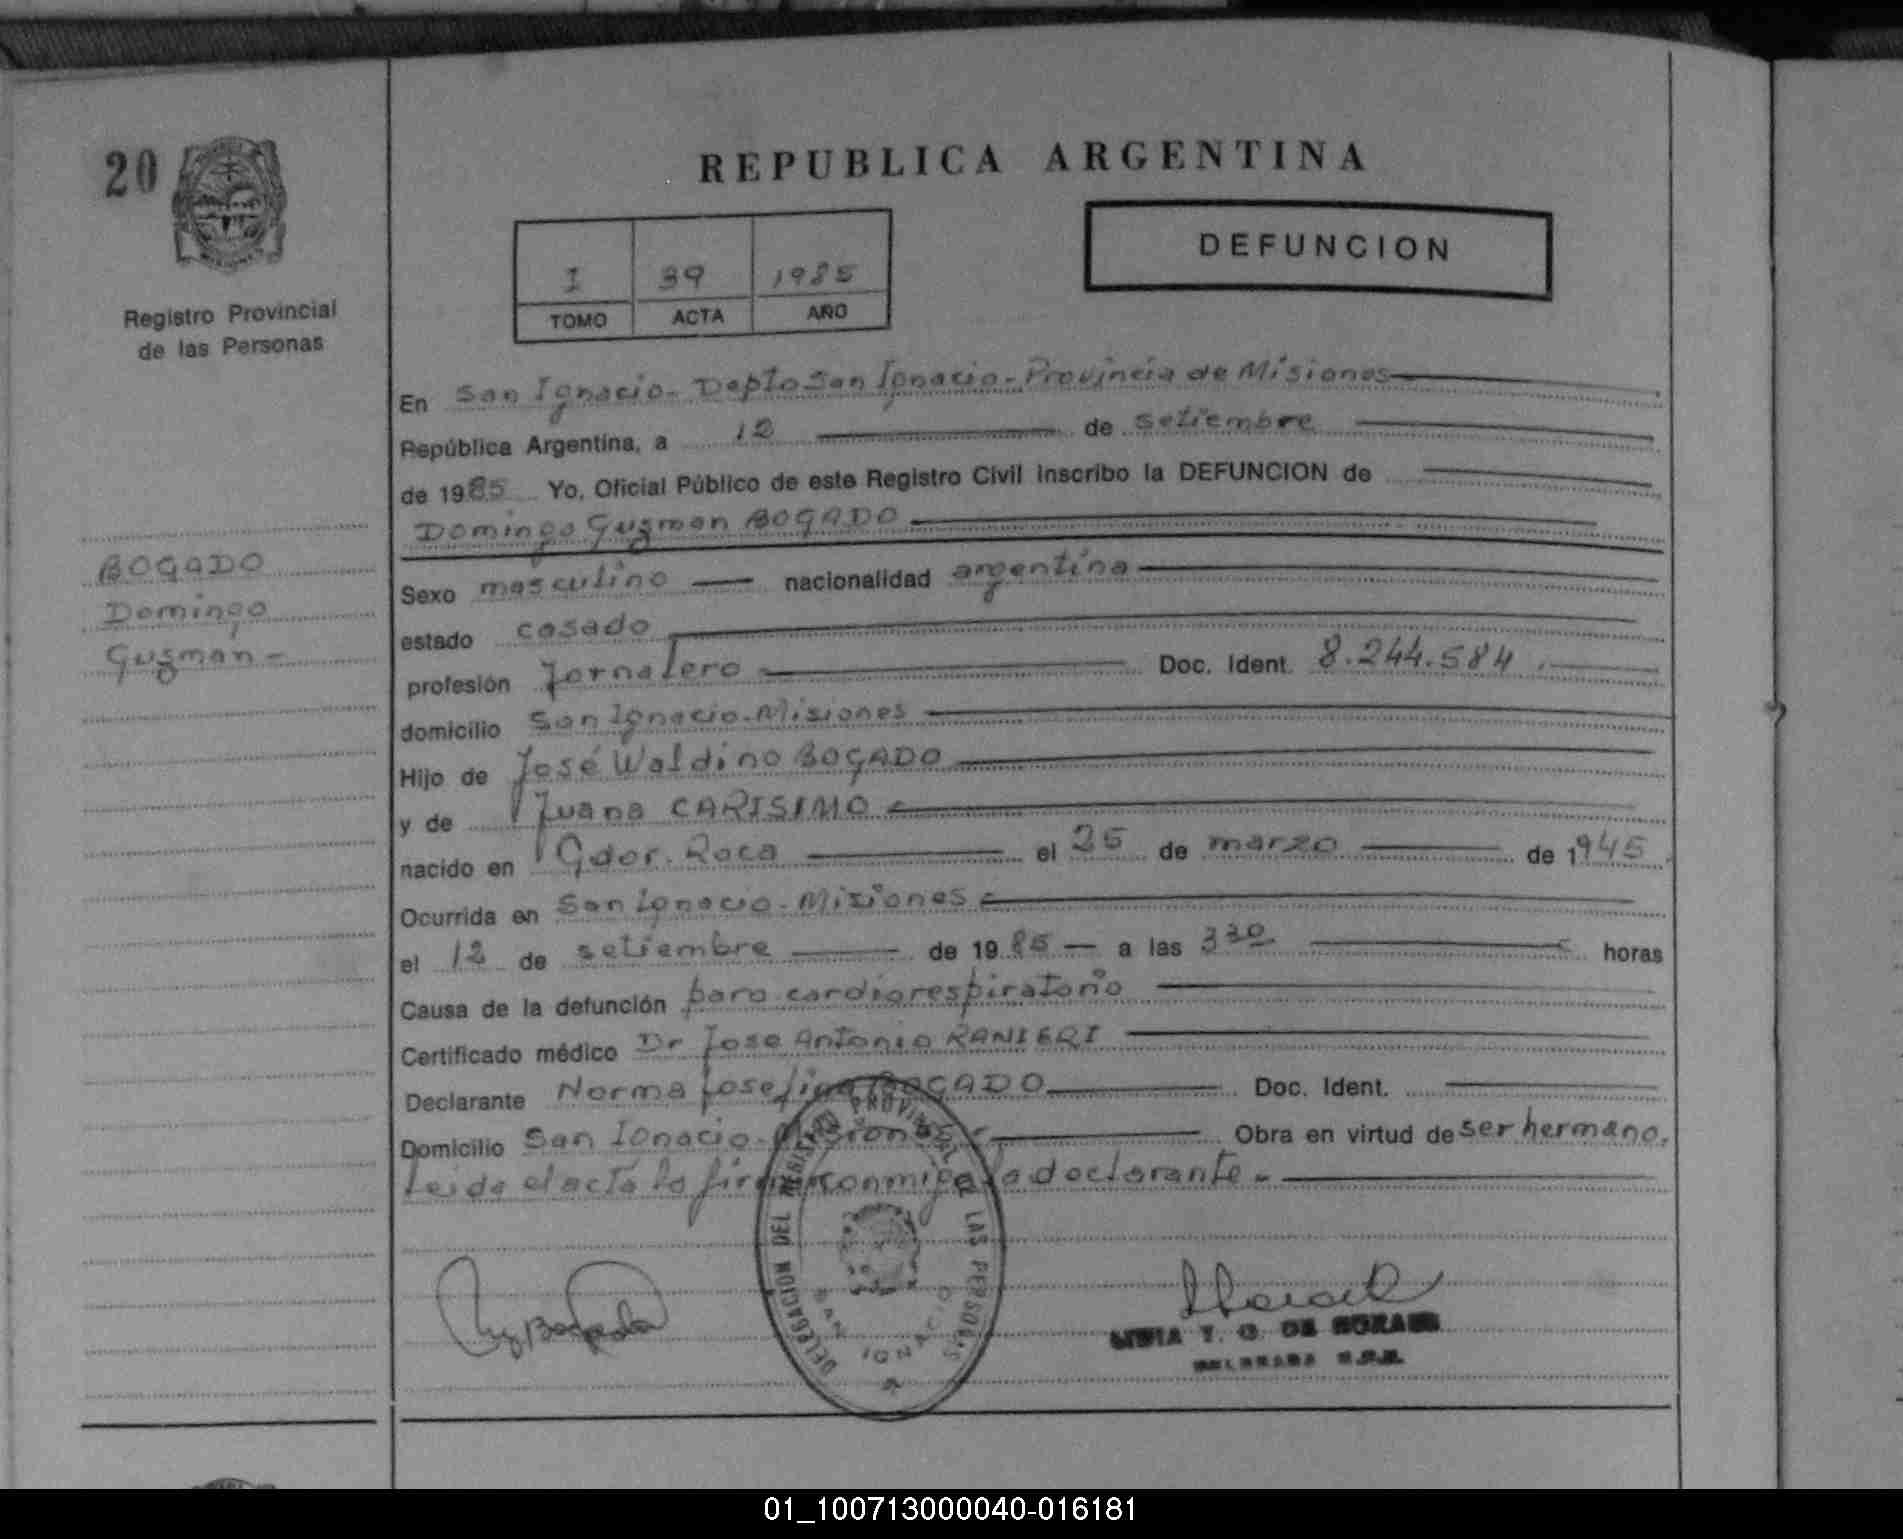 20
Registro Provincial
de las Personas
BOGADO
Domingo
Guzman -
REPUBLICA ARGENTINA
DEFUNCION
I 39 1985
TOMO ACTA AÑO
En San Ignacio - Depto San Ignacio - Provincia de Misiones
República Argentina, a 12 de setiembre
de 1985 Yo, Oficial Público de este Registro Civil inscribo la DEFUNCION de
Domingo Guzman BOGADO
Sexo masculino nacionalidad argentina
estado casado
profesión Jornalero Doc. Ident. 8.244.584
domicilio San Ignacio - Misiones
Hijo de José Waldino BOGADO
y de Juana CARISIMO
nacido en Gdor. Roca el 25 de marzo de 1945
Ocurrida en San Ignacio - Misiones
el 12 de setiembre de 1985 a las 3 30 horas
Causa de la defunción paro cardiorespiratorio
Certificado médico Dr Jose Antonio RANIERI
Declarante Norma Josefina BOGADO Doc. Ident.
Domicilio San Ignacio - Misiones Obra en virtud de ser hermano.
Leida el acta la firma conmigo la declarante.
DELEGACION DEL REGISTRO PROVINCIAL DE LAS PERSONAS
SAN IGNACIO
Bogado
T. G. DE MORAES
01_100713000040-016181